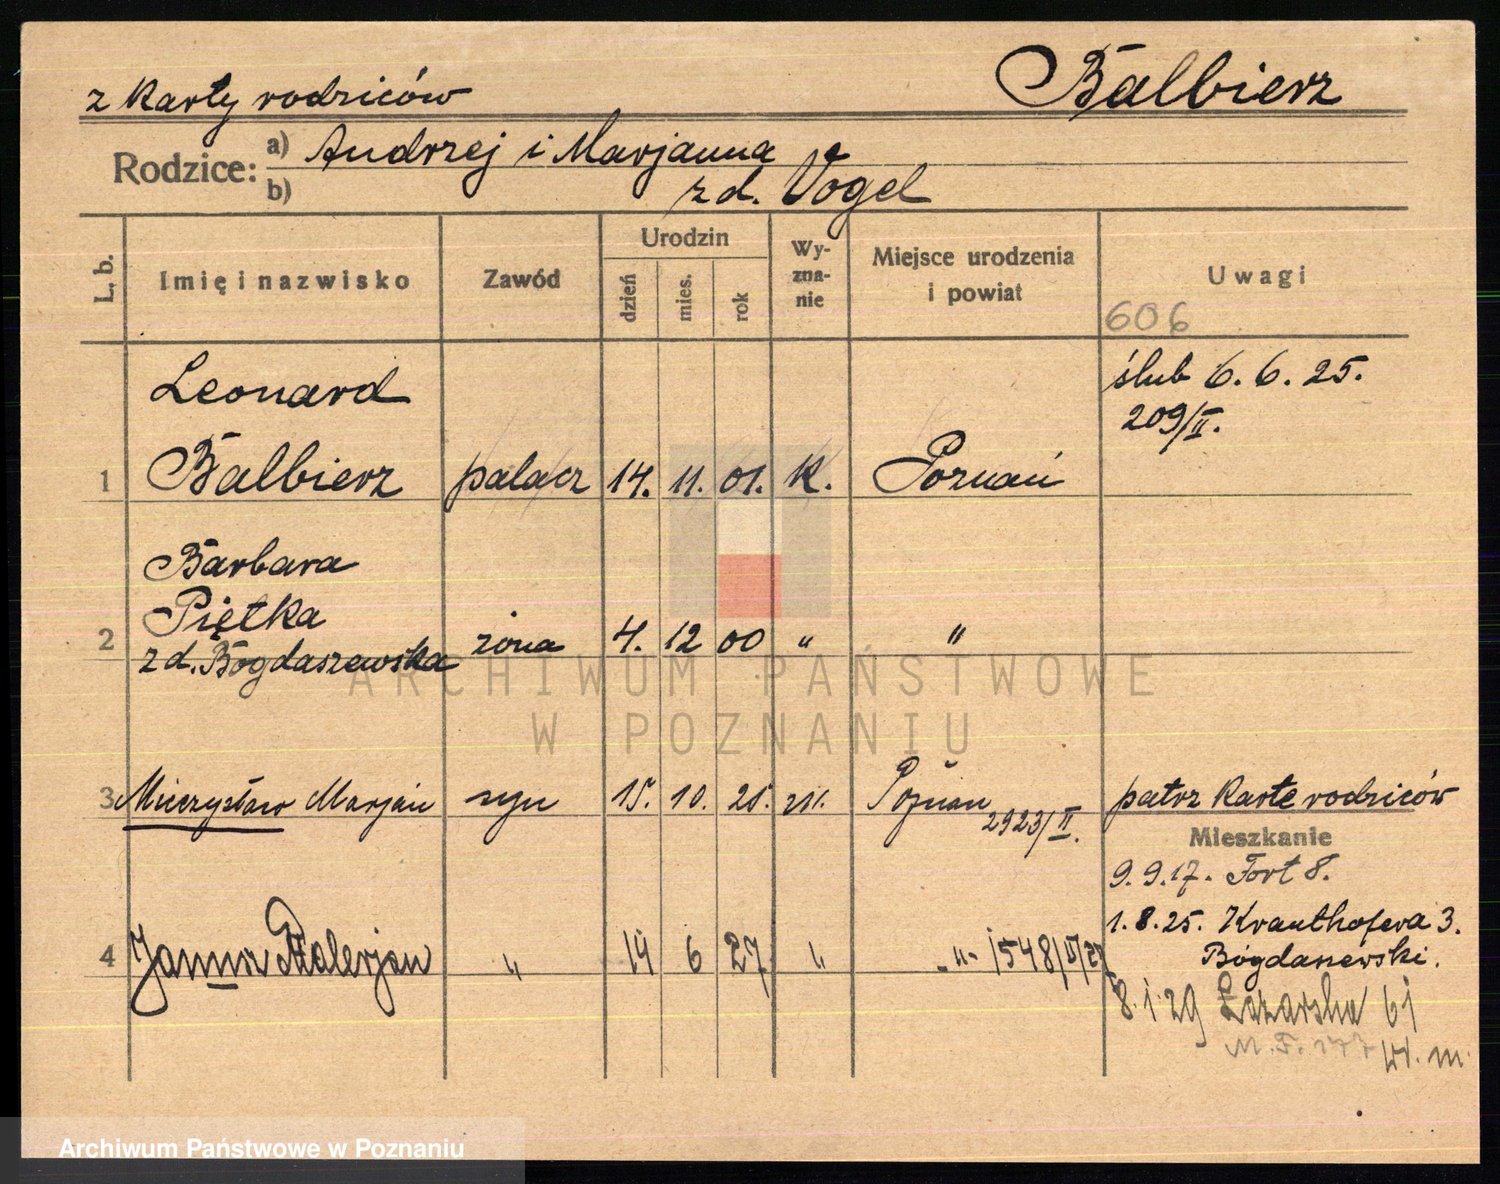 z karty rodziców
Balbierz
Rodzice: a) Andrzej i Marjanna
b) z d. Vogel
L. b.
Imię i nazwisko
Zawód
Urodzin
dzień
mies.
rok
Wy-
zna-
nie
Miejsce urodzenia
i powiat
Uwagi
606
Leonard
ślub 6. 6. 25.
209/II.
1 Balbierz palacz 14. 11. 01. K. Poznań
Barbara
Piętka
2 z d. Bogdaszewska żona 4. 12 00 " "
ARCHIWUM PAŃSTWOWE
W POZNANIU
3 Mieczysław Marjan syn 15. 10. 25. Poznań patrz kartę rodziców
2923/II.
Mieszkanie
9. 9. 17. Fort 8.
1. 8. 25. Krauthofera 3.
4 " 14 6 27 " -"- 1548/II/27 Bogdaszewski.
8. 1. 29 Łazarska 61
M. F. 177 W. m.
Archiwum Państwowe w Poznaniu